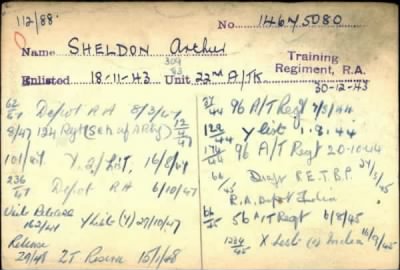 112/88.
No. 14675080
Name SHELDON Arthur
309
83
Training
Regiment, R.A.
Enlisted 18-11-43 Unit 22nd A/TK
30-12-43
62/47 Depot R A 8/3/47
8/47 124 Regt (Sch of Arty) 12/47
101/47. Y.2/List. 16/8/47
236/47 Depot R A 6/10/47
Vide Release 162/47 Y List (Y) 29/10/47
Release 29/48 ZT Reserve 15/1/48
96 A/T Regt 7/3/44
122/44 Y list 1.8.44
174/44 96 A/T Regt 20-10-44
66/45 Draft R.E.T.B.P. 24/3/45
R.A. Depot India
66/45 56 A/T Regt 6/8/45
X List India 16/9/45